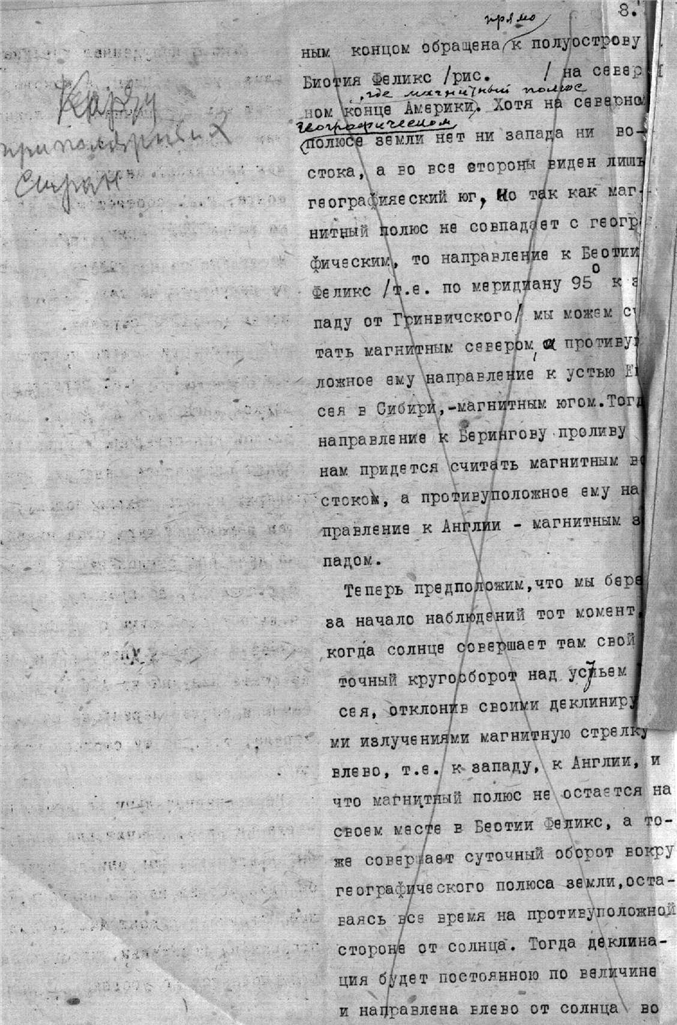 8.
прямо
ным концом обращена к полуострову
Биотия Феликс /рис. / на север
, где магнитный полюс
ном конце Америки. Хотя на северном
географическом
полюсе земли нет ни запада ни во-
стока, а во все стороны виден лишь
географияеский юг, Но так как маг-
нитный полюс не совпадает с геогра
фическим, то направление к Беотии
Феликс /т.е. по меридиану 95° к з
паду от Гринвичского/ мы можем сч
тать магнитным севером, а противуп
ложное ему направление к устью Ени
сея в Сибири,-магнитным югом. Тогд
направление к Берингову проливу
нам придется считать магнитным во
стоком, а противуположное ему на
правление к Англии - магнитным за
падом.
Теперь предположим, что мы бере
за начало наблюдений тот момент,
когда солнце совершает там свой
точный кругооборот над устьем
сея, отклонив своими деклиниру
ми излучениями магнитную стрелку
влево, т.е. к западу, к Англии, и
что магнитный полюс не остается на
своем месте в Беотии Феликс, а то-
же совершает суточный оборот вокру
географического полюса земли, оста-
ваясь все время на противуположной
стороне от солнца. Тогда деклина-
ция будет постоянною по величине
и направлена влево от солнца во
Карту
приполярных
стран